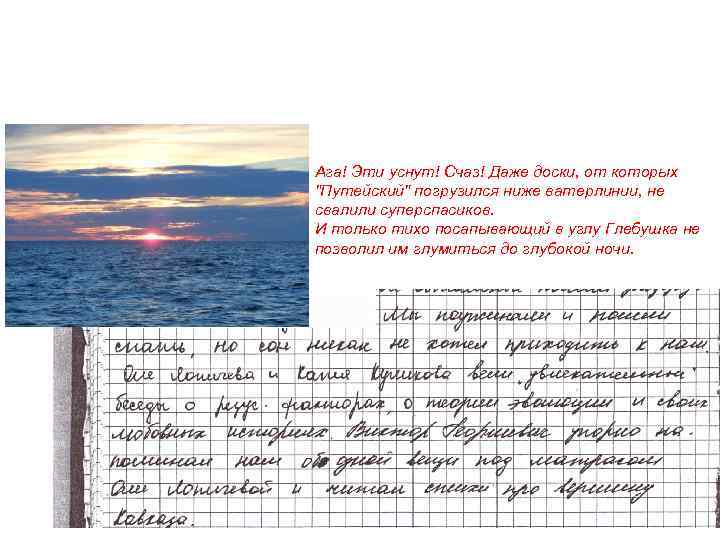 Ага! Эти уснут! Счаз! Даже доски, от которых
"Путейский" погрузился ниже ватерлинии, не
свалили суперспасиков.
И только тихо посапывающий в углу Глебушка не
позволил им глумиться до глубокой ночи.
Мы поужинали и пошли
спать, но сон никак не хотел приходить к нам.
Оле Лопичева и Катя Куликова вели увлекательные
беседы о резус-факторах, о теории эволюции и своих
любовных историях. Виктор Георгиевич упорно на-
поминал нам об одной вещи под матрасом
Оли Лопичевой и читал стихи про вершину
Кавказа.